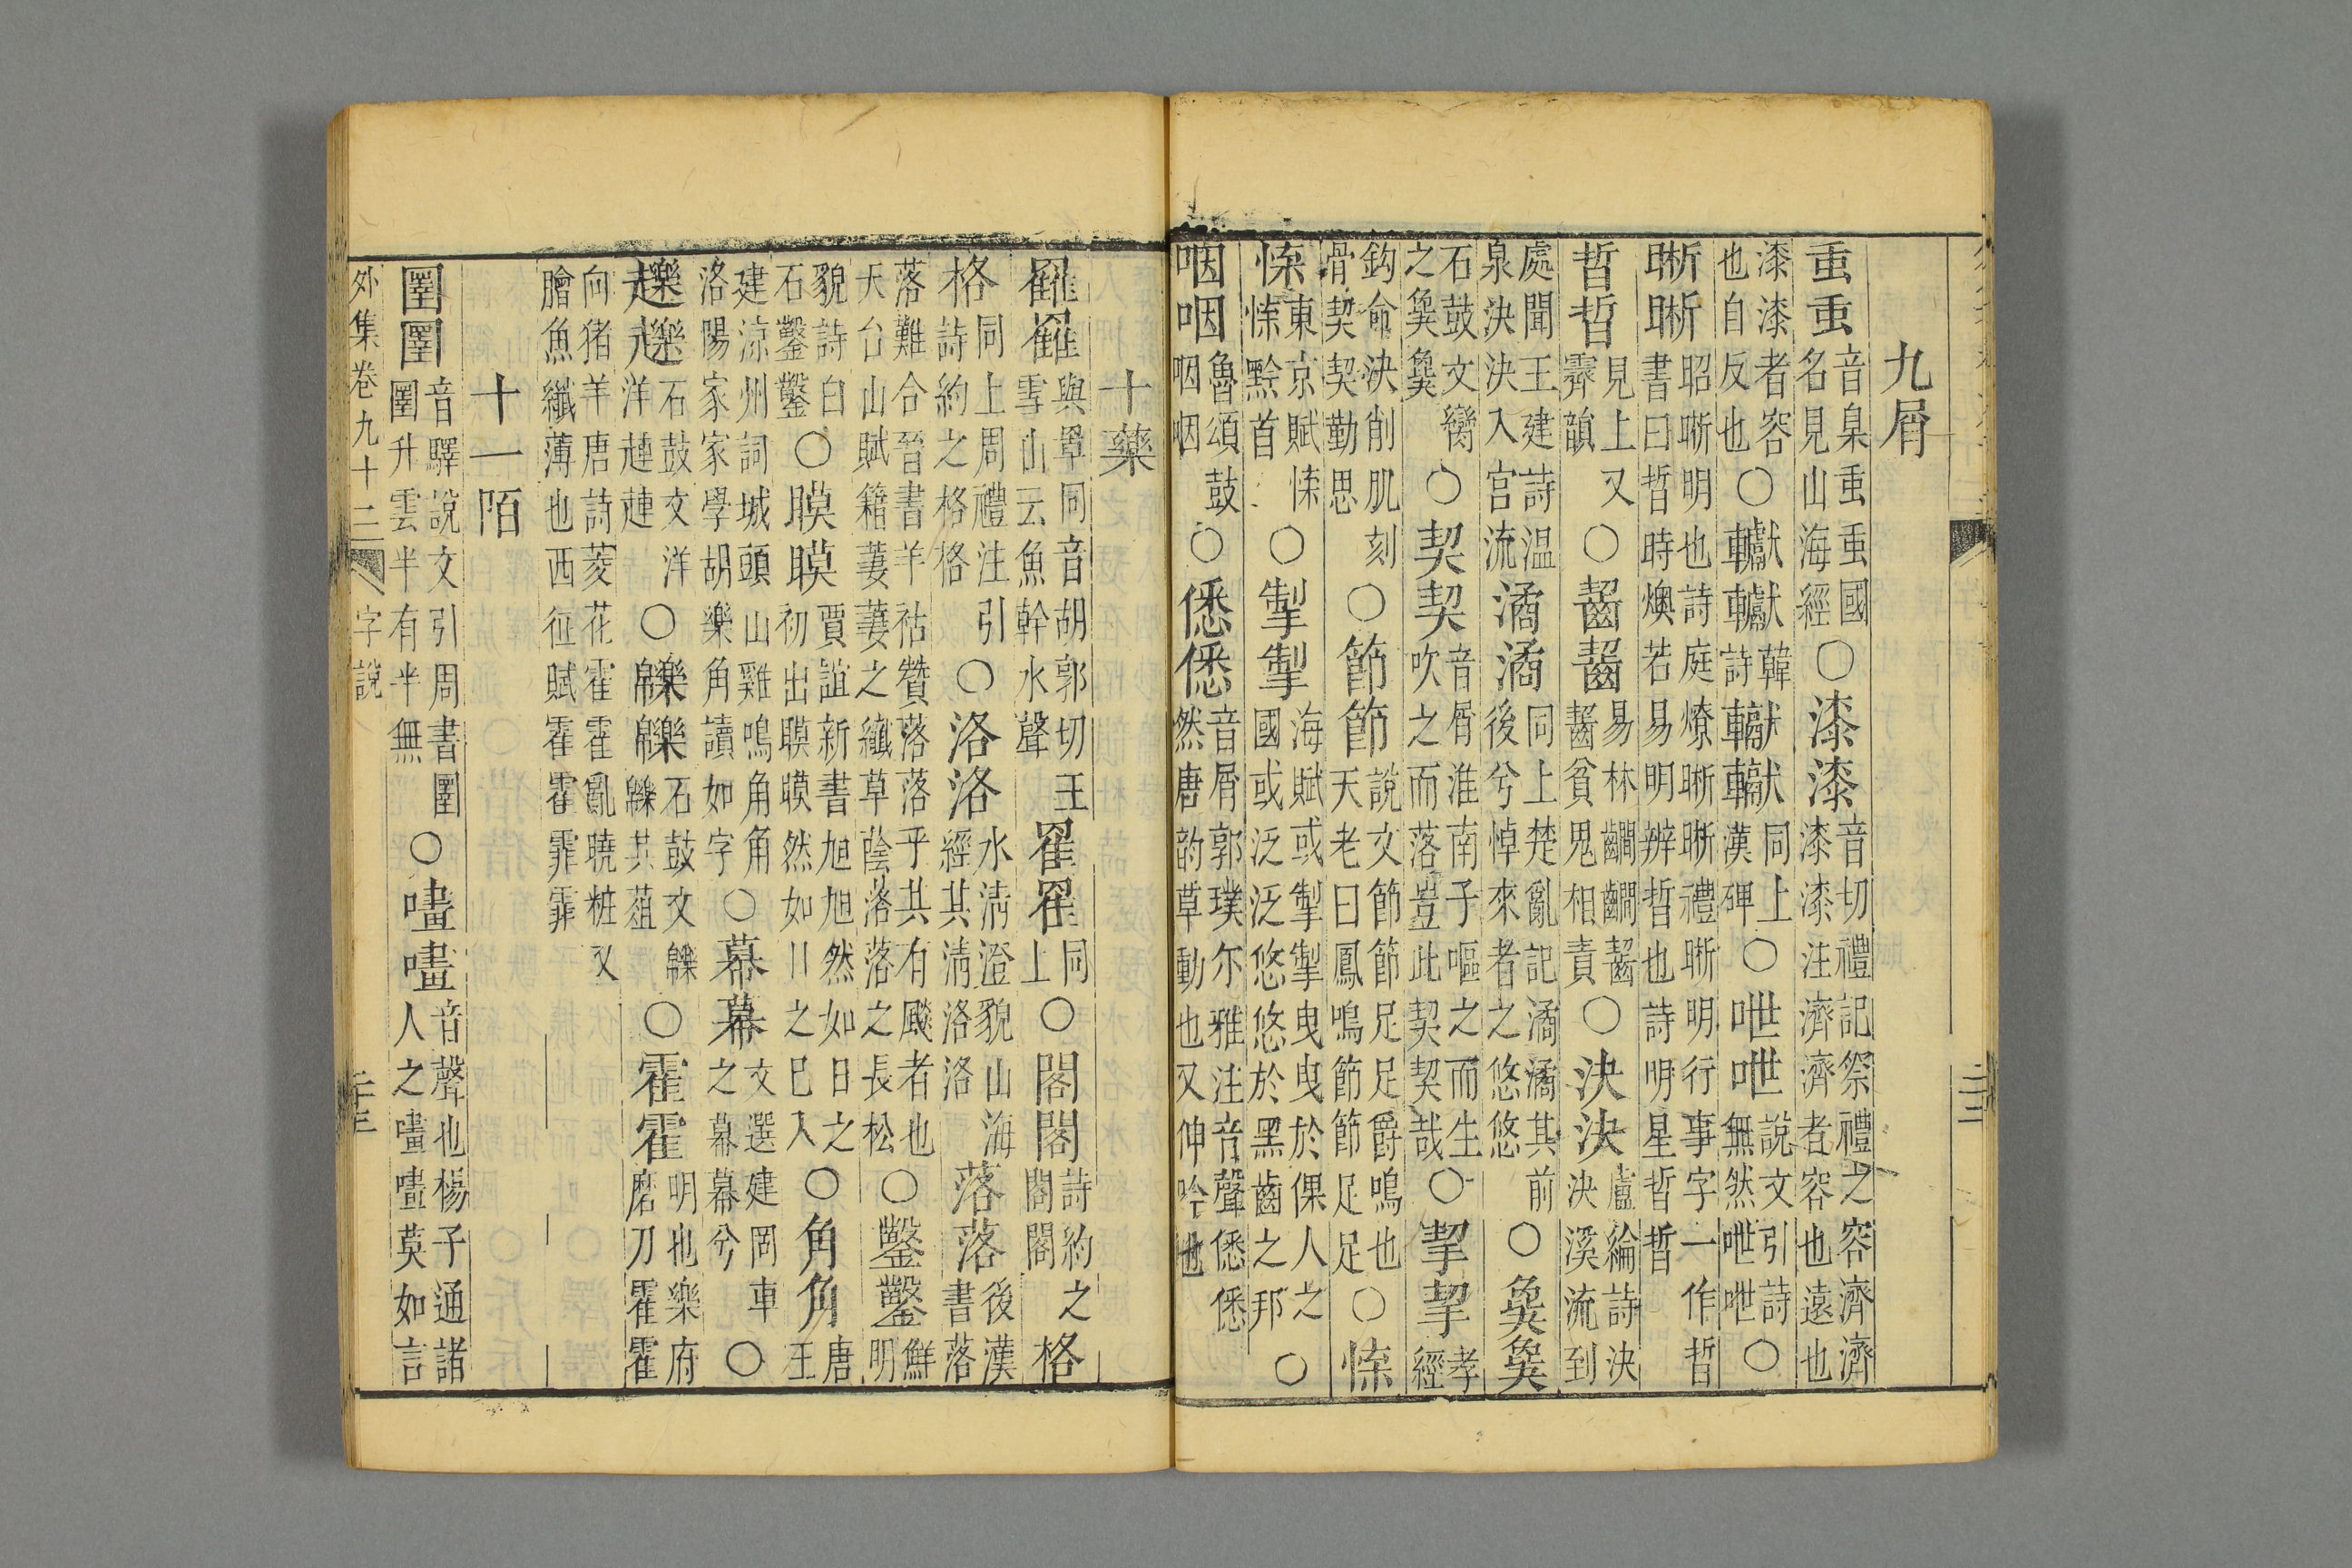 九屑
䖝䖝音臬䖝䖝國名見山海經〇漆漆音切禮記祭禮之容濟濟漆漆注濟濟者容也遠也
漆漆者容也自反也〇轥轥韓詩轥轥同上漢碑〇呭呭說文引詩無然呭呭〇
晣晣昭晣明也詩庭燎晣晣禮晣明行事字一作晢書曰晢時燠若易明辨晢也詩明星晢晢
晢晢見上又霽韻〇齧齧易林齫齫齧齧貧鬼相責〇決決盧綸詩決決溪流到
處聞王建詩温泉決決入宫流潏潏同上楚亂記潏潏其前後兮悼來者之悠悠〇奐奐
石鼓文臠之奐奐〇契契音屑淮南子嘔之而生吹之而落豈此契契哉〇挈挈孝經
鈎命決削肌刻骨挈挈勤思〇節節說文節節足足爵鳴也天老曰鳳鳴節節足足〇㥆
㥆東京賦㥆㥆黔首〇掣掣海賦或掣掣曳曳於倮人之國或泛泛悠悠於黑齒之邦〇
咽咽魯頌鼓咽咽〇僁僁音屑郭璞尔雅注音聲僁僁然唐韵草動也又伸吟也
十藥
雗雗與睾同音胡郭切王雪山云魚幹水聲翟翟同上〇閣閣詩約之閣閣格
格同上周禮注引詩約之格格〇洛洛水淸澄貌山海經其淸洛洛落落後漢書落
落難合晉書羊祜贊落落乎其有颷者也天台山賦籍萋萋之纖草蔭落落之長松〇鑿鑿鮮明
貌詩白石鑿鑿〇瞙瞙賈誼新書旭旭然如日之初出瞙瞙然如川之巳入〇角角唐王
建涼州詞城頭山雞鳴角角洛陽家家學胡樂角讀如字〇幕幕文選建罔車之幕幕兮〇
趮趮石鼓文洋洋趚趚〇皪皪石鼓文皪皪其葅〇霍霍明也樂府磨刀霍霍
向猪羊唐詩菱花霍霍亂曉粧又膾魚纖薄也西征賦霍霍霏霏
十一陌
圛圛音驛說文引周書圛圛升雲半有半無〇嚍嚍音聲也楊子通諸人之嚍嚍莫如言
外集卷九十二 字說 二十三